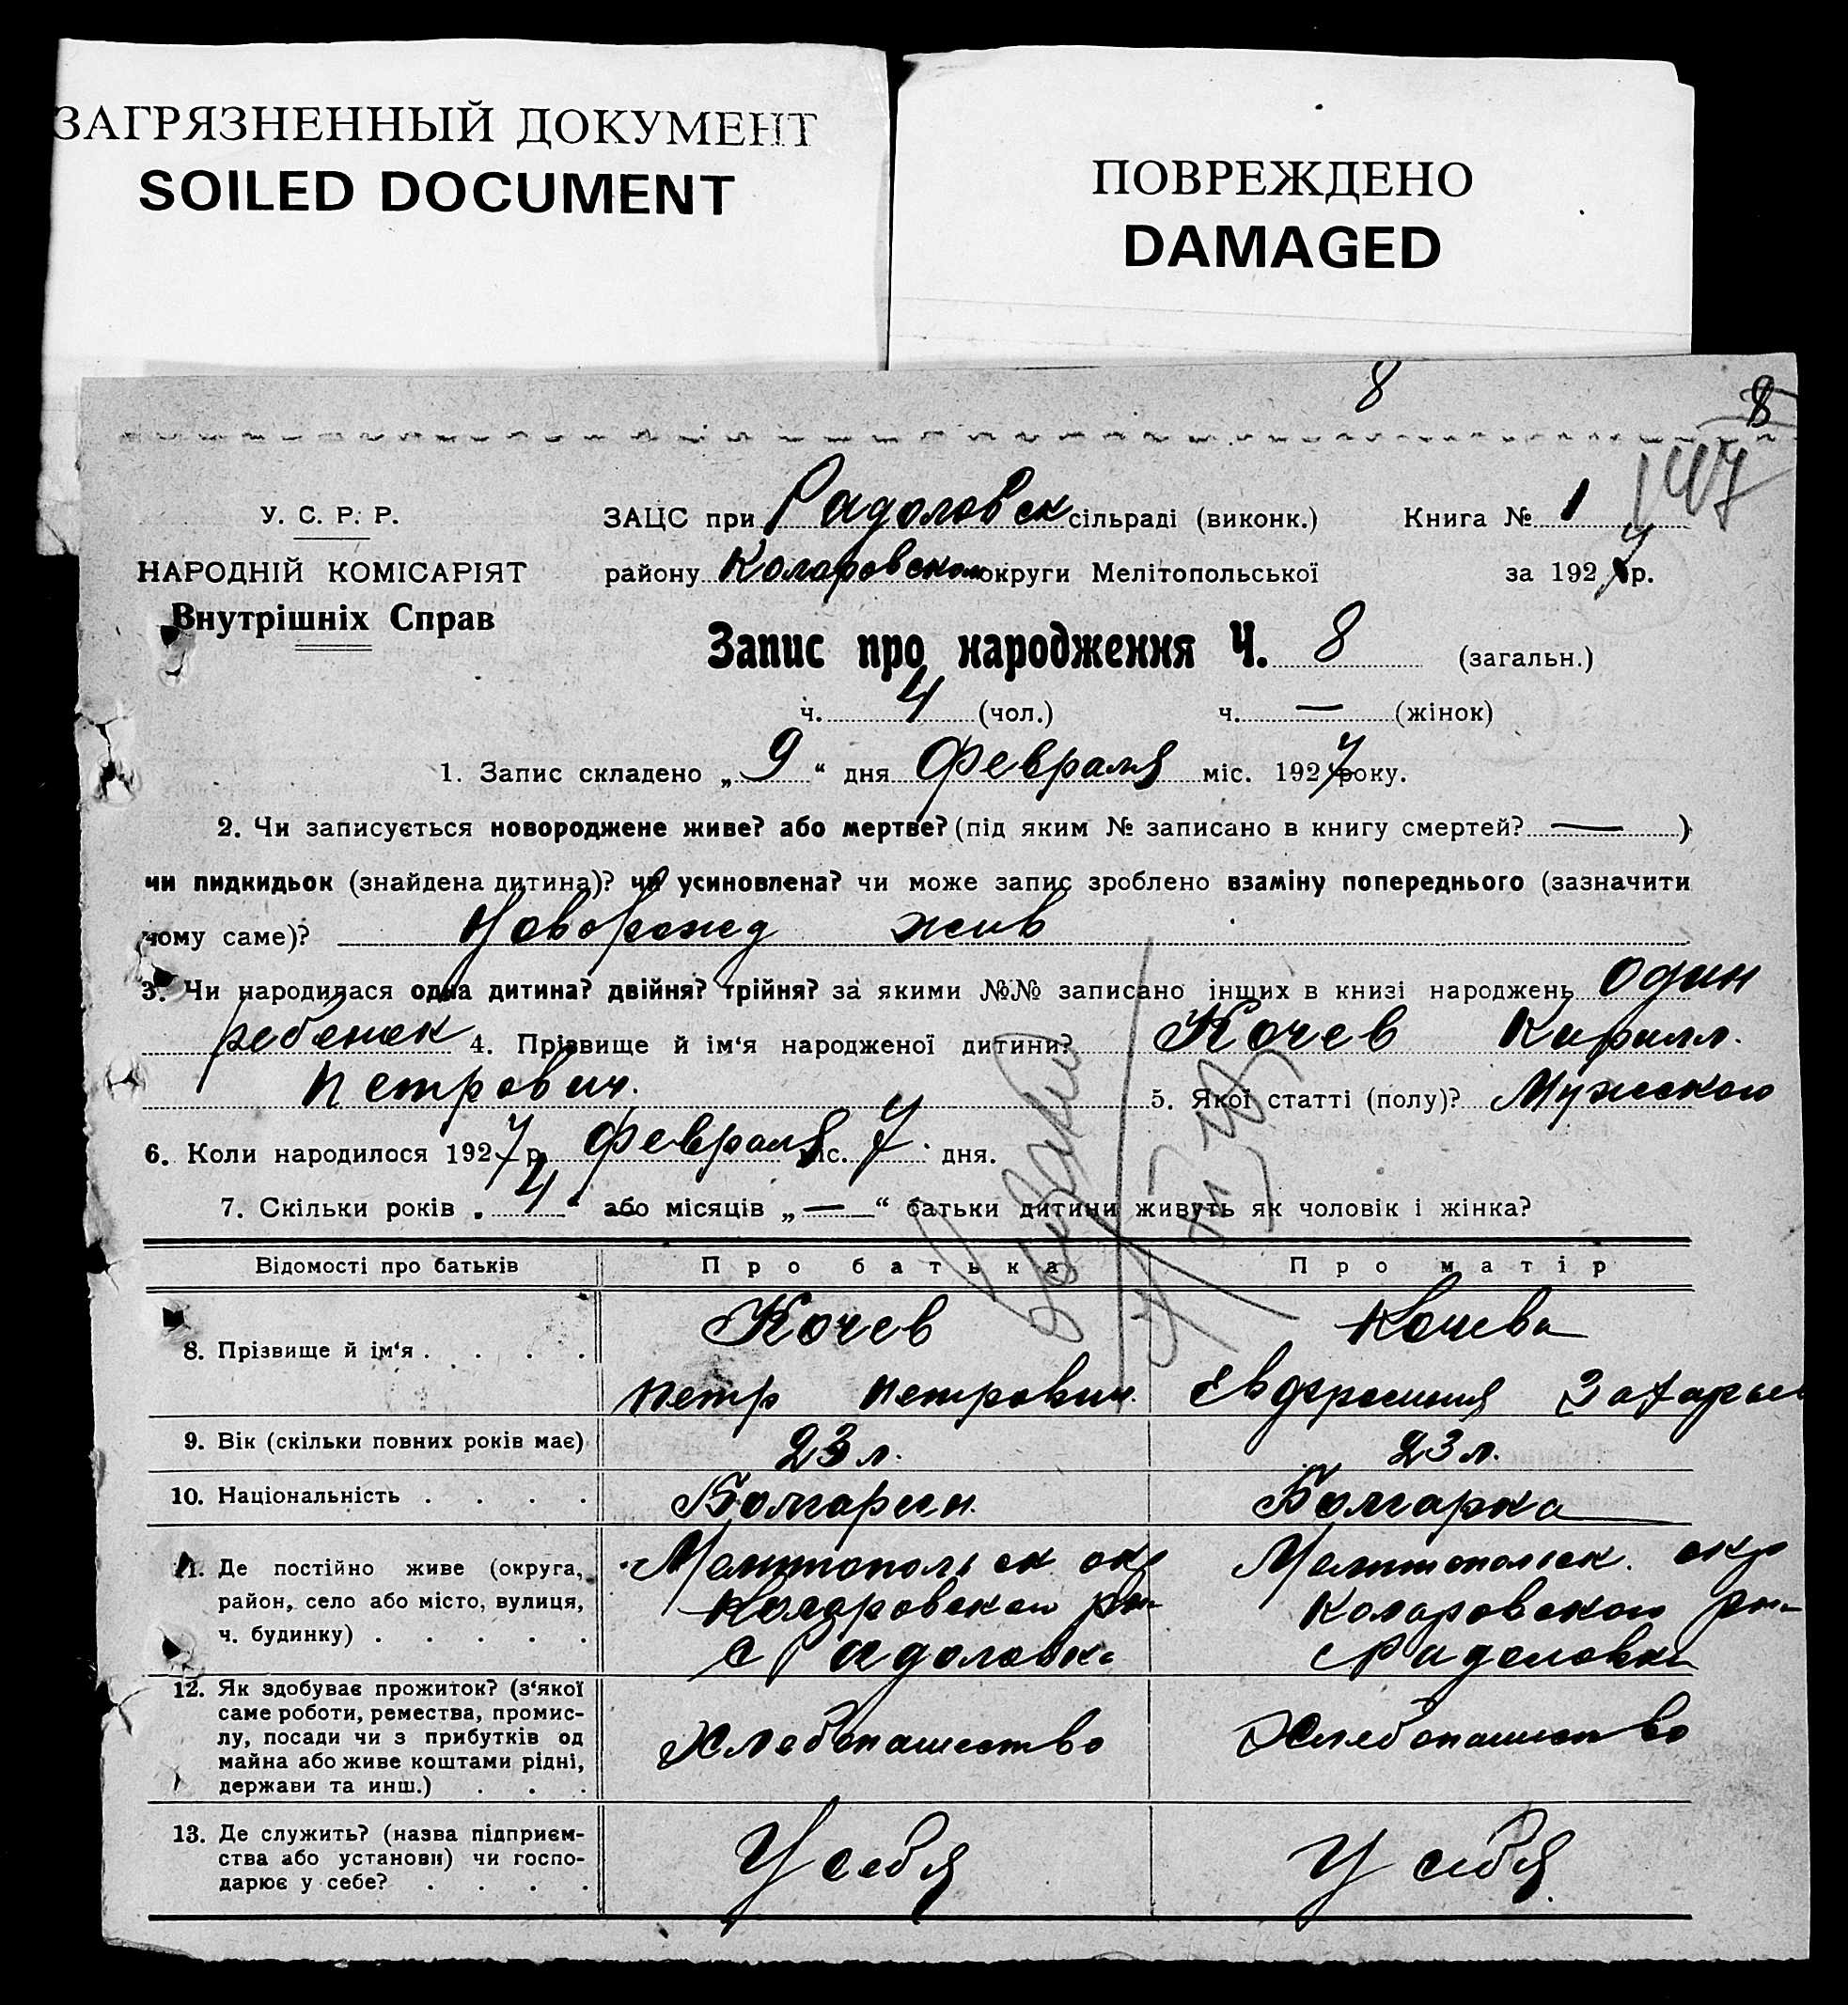 ЗАГРЯЗНЕННЫЙ ДОКУМЕНТ
SOILED DOCUMENT
ПОВРЕЖДЕНО
DAMAGED
8
8
147
У. С. Р. Р.
НАРОДНІЙ КОМІСАРІЯТ
Внутрішніх Справ
ЗАЦС при Радоловск сільраді (виконк.) Книга № 1
району Коларовском округи Мелітопольської за 1927 р.
Запис про народження Ч. 8 (загальн.)
ч. 4 (чол.) ч. — (жінок)
1. Запис складено „ 9 “ дня Февраля міс. 1927 року.
2. Чи записується новороджене живе? або мертве? (під яким № записано в книгу смертей? — )
чи пидкидьок (знайдена дитина)? чи усиновлена? чи може запис зроблено взаміну попереднього (зазначити
чому саме)?Новорожд жив
3. Чи народилася одна дитина? двійня? трійня? за якими №№ записано інших в книзі народжень один
ребенок 4. Прізвище й ім‘я народженої дитини? Кочев Кирилл.
Петрович. 5. Якої статті (полу)? Мужского
6. Коли народилося 1927 р. Февраля міс. 7 дня.
7. Скільки років „ 4 “ або місяців „ — “ батьки дитини живуть як чоловік і жінка?
Відомості про батьків Про батька Про матір
8. Прізвище й ім‘я . . . . Кочев Кочева
Петр Петрович. Евдокросиния Захарьев
9. Вік (скільки повних років має) 23 л. 23 л.
10. Національність . . . . Болгарин. Болгарка
11. Де постійно живе (округа, Мелитопольск окр Мелитопольск. окр
район, село або місто, вулиця, Коларовского рн Коларовского рн
ч. будинку) . . . . . с Радоловка с Радоловка
12. Як здобуває прожиток? (з‘якої
саме роботи, ремества, промис-
лу, посади чи з прибутків од Хлебопашество Хлебопашество
майна або живе коштами рідні,
держави та инш.) . . .
13. Де служить? (назва підприєм-
ства або установи) чи госпо- У себя У себя.
дарює у себе? . . . .